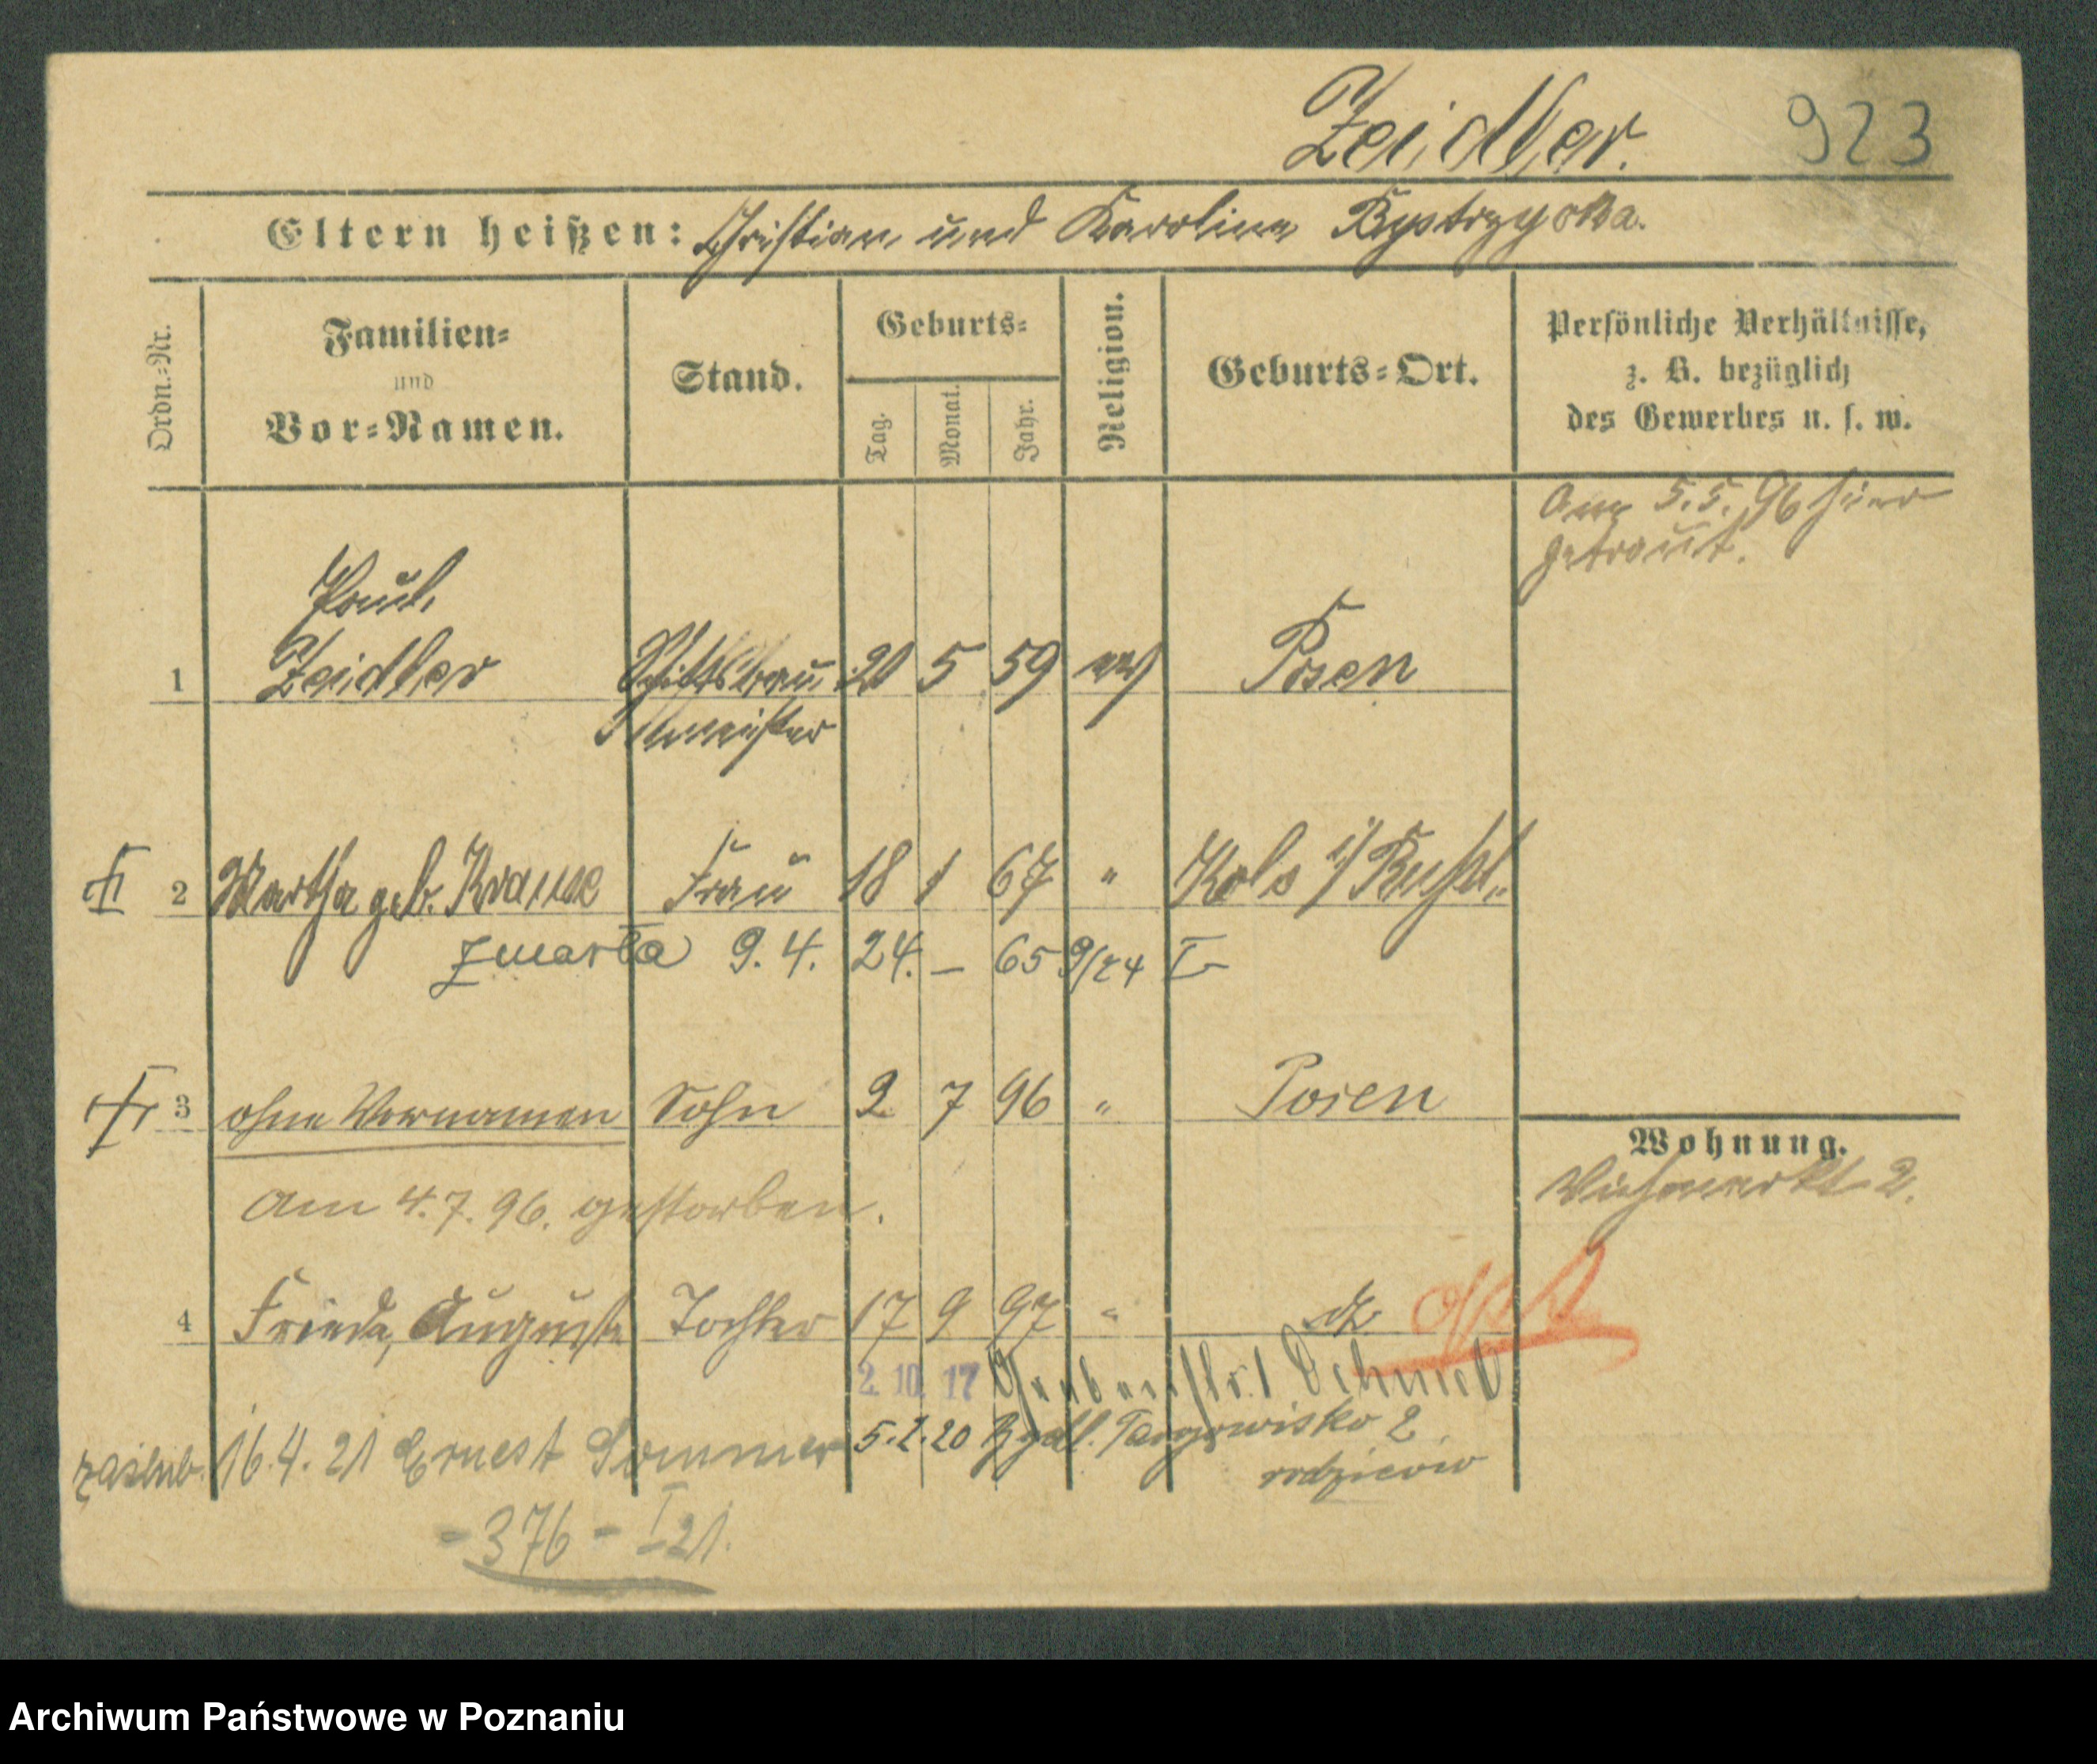 Zeidler.
923
Eltern heißen: Christian und Karoline Bystrzycka.
Ordn.=Nr.
Familien=
und
Vor=Namen.
Stand.
Geburts=
Tag.
Monat.
Jahr.
Religion.
Geburts=Ort.
Persönliche Verhältnisse,
z. B. bezüglich
des Gewerbes u. s. w.
Am 5.5.96 hier
getraut.
Paul
1 Zeidler 20 5 59 ev Posen
meister
2 Martha geb. Krause Frau 18 1 67 " Kolo i/ Rußl.
zmarła 9.4. 24. – 65 9/24 I
3 ohne Vornamen Sohn 2 7 96 " Posen
Am 4.7.96. gestorben.
Wohnung.
Viehmarkt 2.
4 Frieda, Auguste Tochter 17 9 97 "
2. 10. 17
5.2.20 Bydl. Targowisko 2
rodziców
zaślub. 16.4.21 Ernest Sommer
- 376 - I 21.
Archiwum Państwowe w Poznaniu